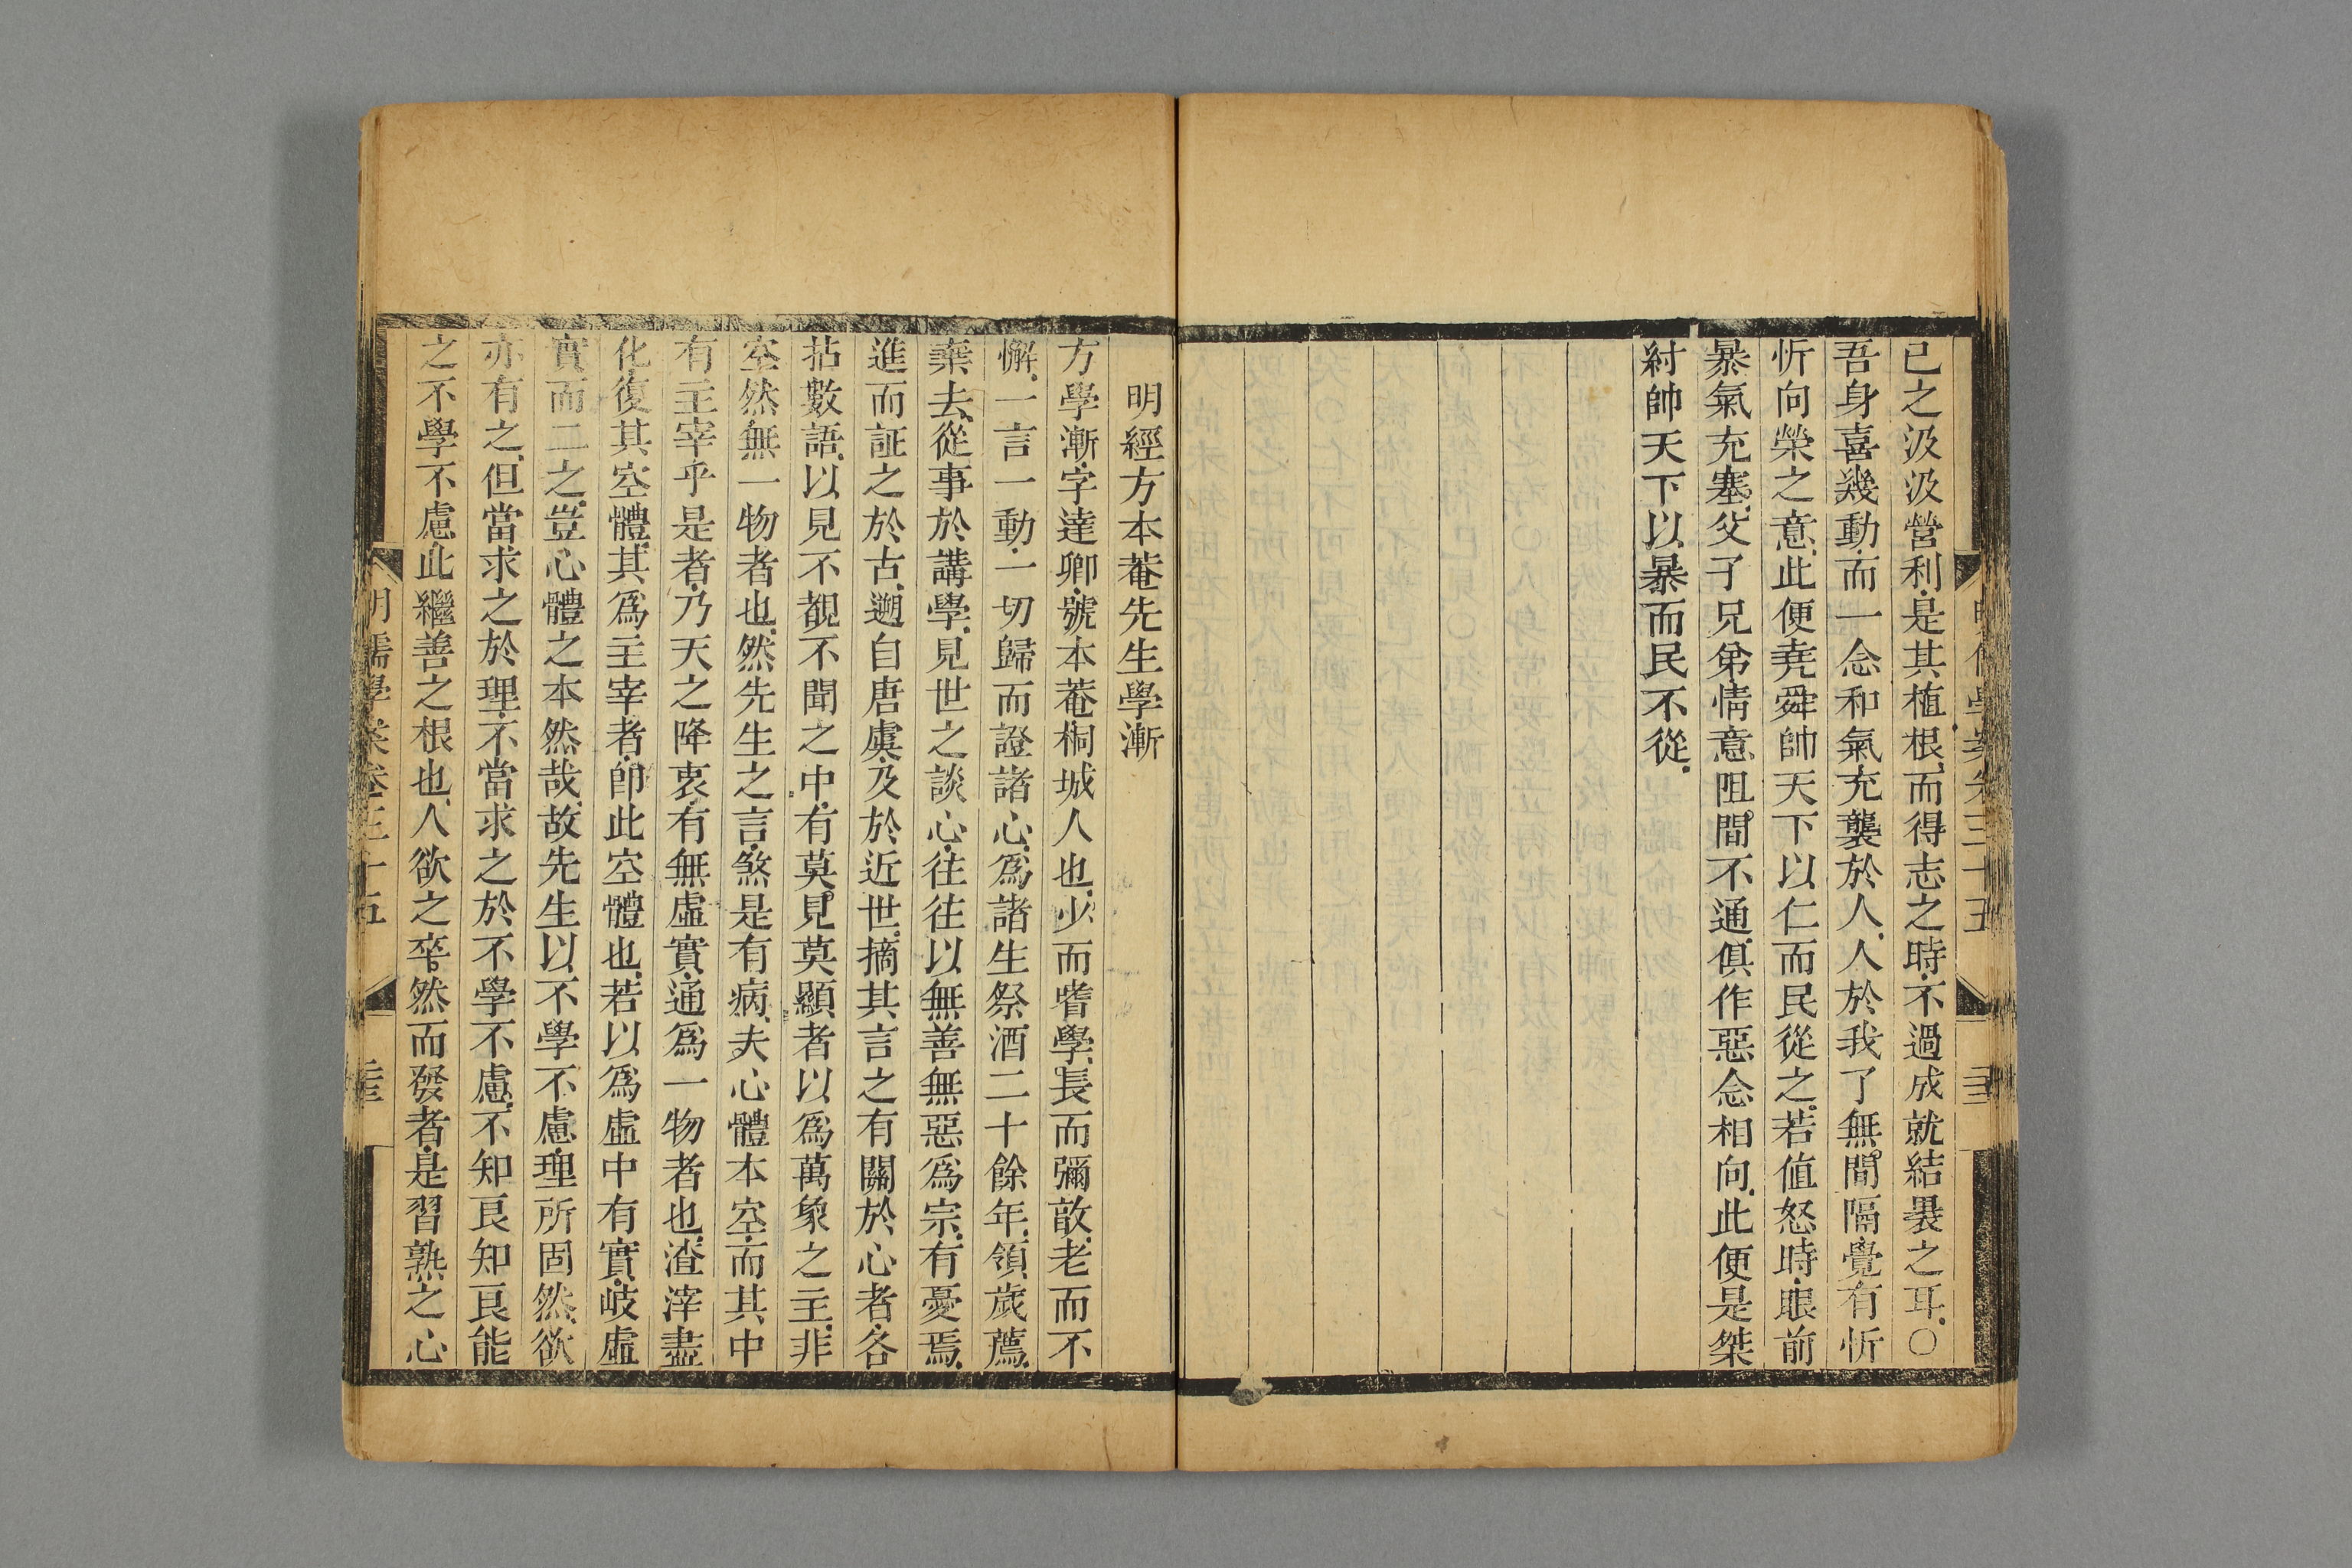 已之汲汲營利是其植根而得志之時不過成就結褁之耳○
吾身喜幾動而一念和氣充襲於人人於我了無間隔覺有忻
忻向榮之意此便堯舜帥天下以仁而民從之若值怒時眼前
暴氣充塞父子兄弟情意阻間不通俱作惡念相向此便是桀
紂帥天下以暴而民不從
明經方本菴先生學漸
方學漸字達卿號本菴桐城人也少而嗜學長而彌敦老而不
懈一言一動一切歸而證諸心爲諸生祭酒二十餘年領歲薦
棄去從事於講學見世之談心往往以無善無惡爲宗有憂焉
進而証之於古遡自唐虞及於近世摘其言之有關於心者各
拈數語以見不覩不聞之中有莫見莫顯者以爲萬象之主非
空然無一物者也然先生之言煞是有病夫心體本空而其中
有主宰乎是者乃天之降衷有無虛實通爲一物者也渣滓盡
化復其空體其爲主宰者卽此空體也若以爲虛中有實岐虛
實而二之豈心體之本然哉故先生以不學不慮理所固然欲
亦有之但當求之於理不當求之於不學不慮不知良知良能
之不學不慮此繼善之根也人欲之卒然而發者是習熟之心
明儒學案卷三十五